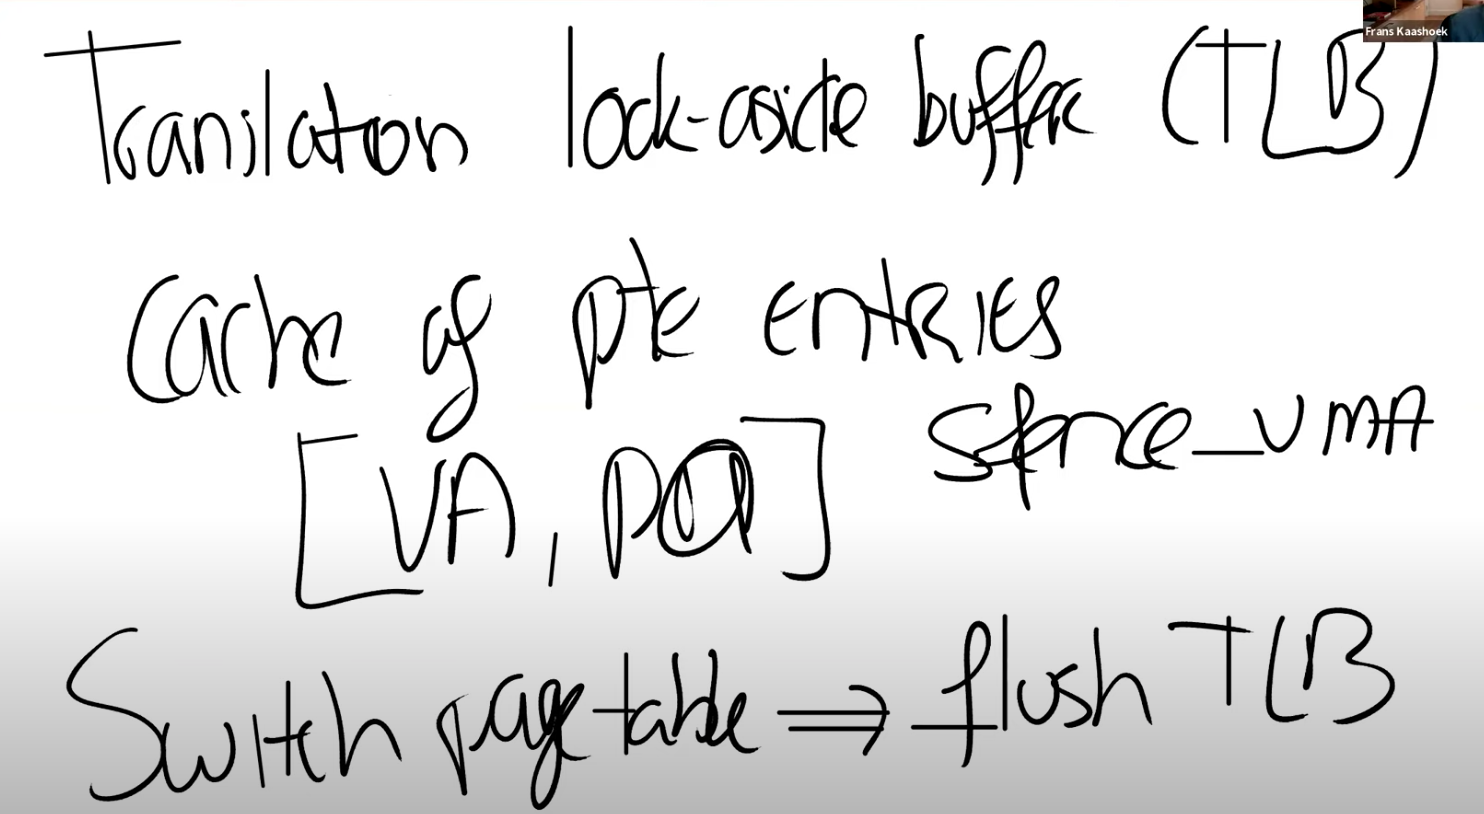 Frans Kaashoek
Translation look-aside buffer (TLB)
Cache of pte entries
sfence_VMA
[VA, PA]
Switch page table ⇒ flush TLB